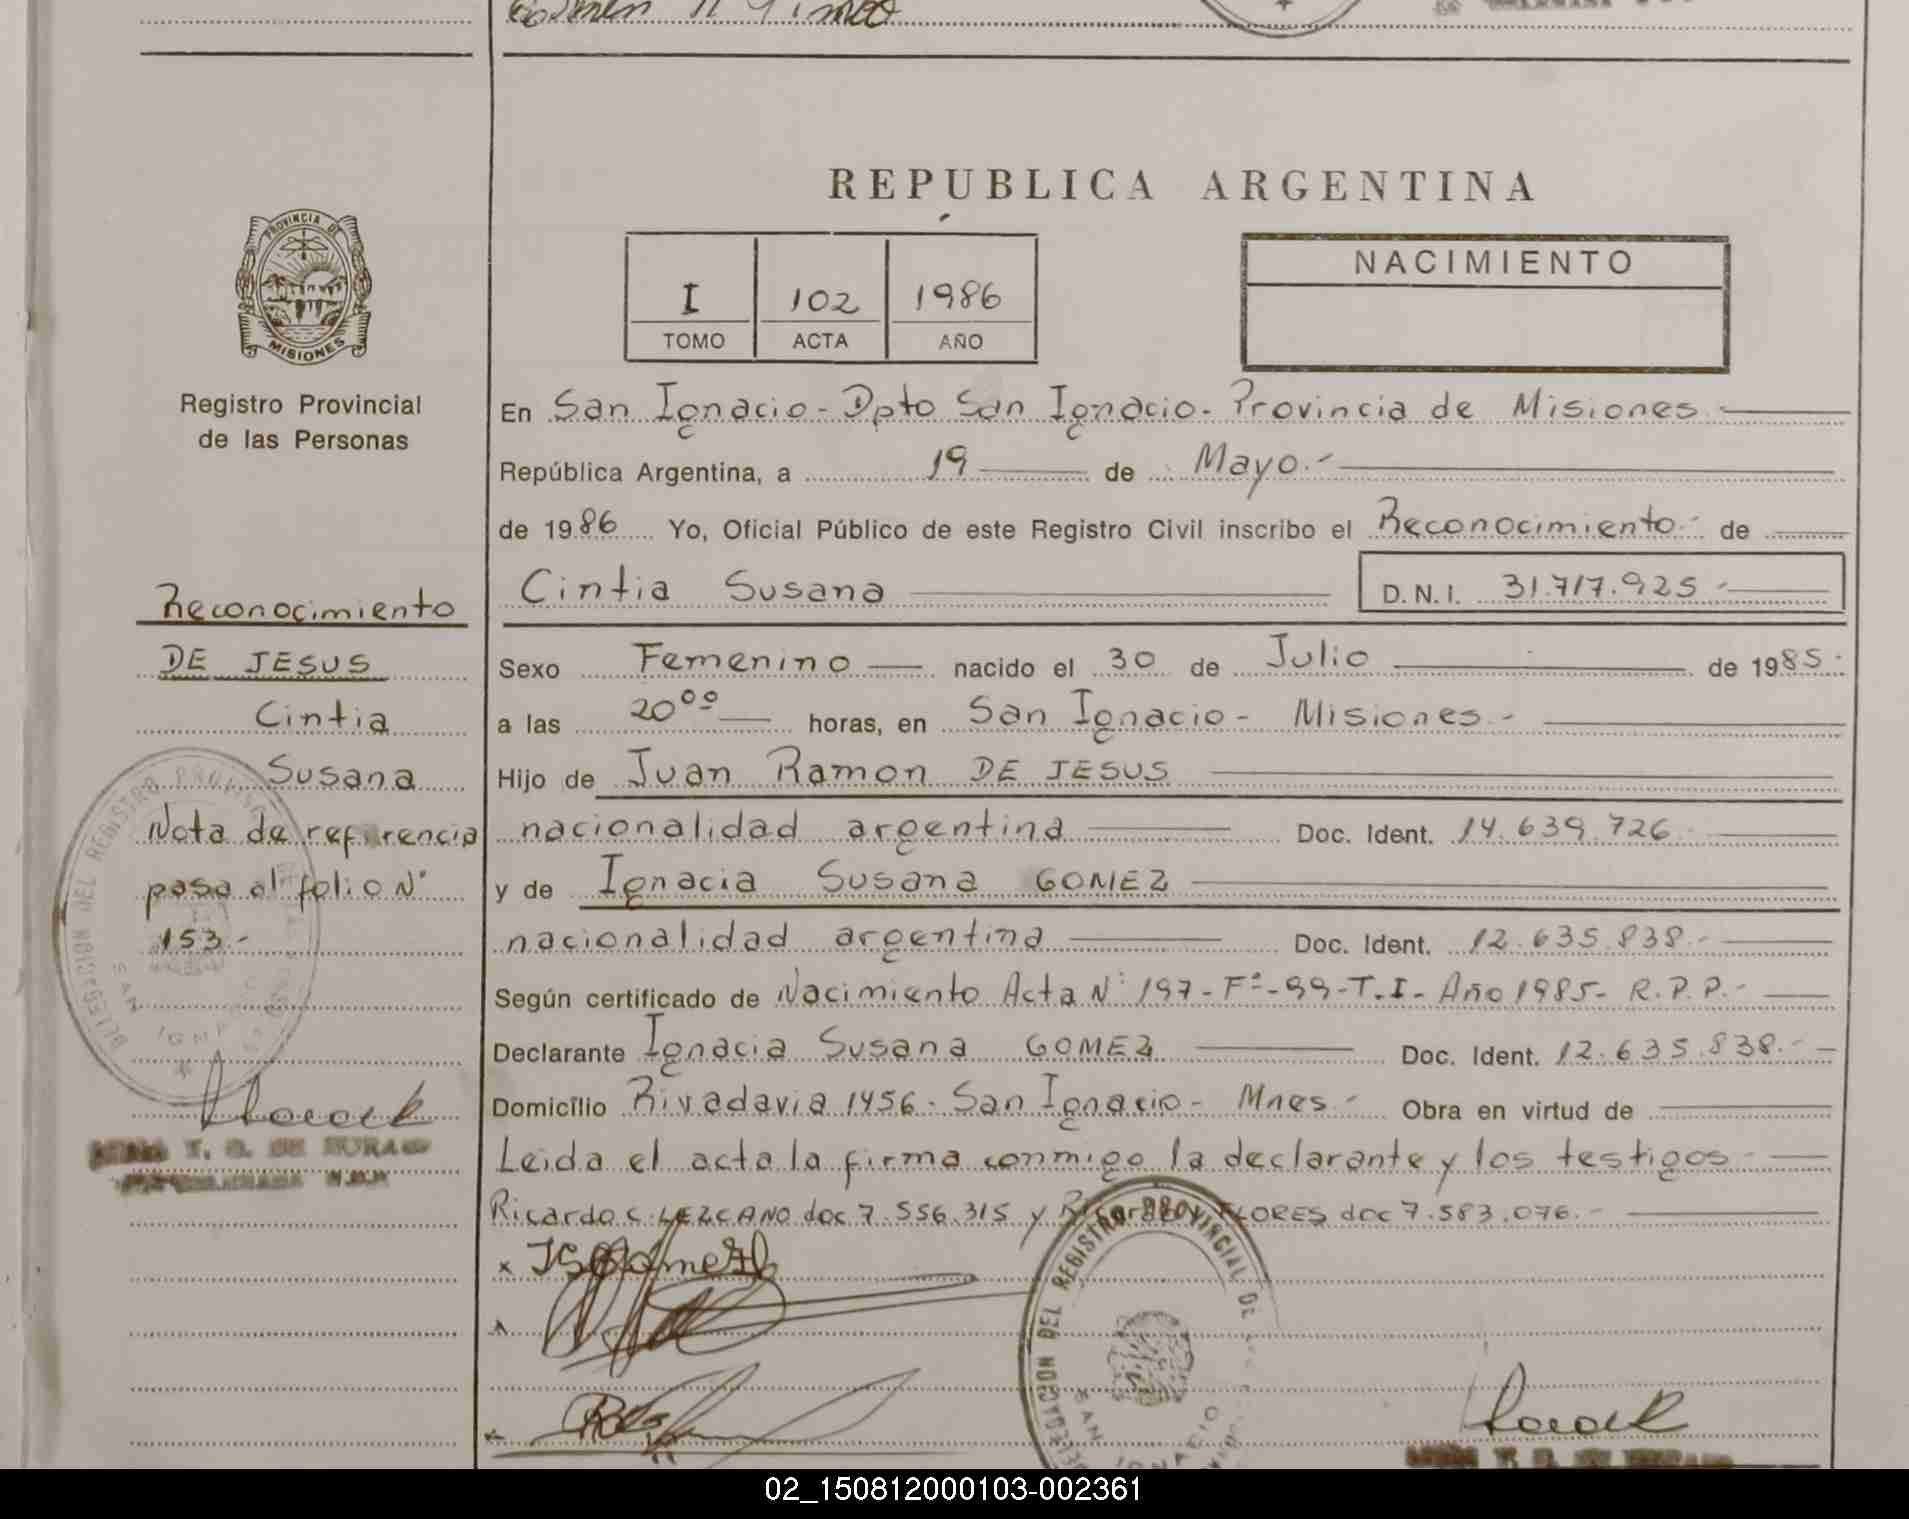 REPUBLICA ARGENTINA
PROVINCIA DE
MISIONES
Registro Provincial
de las Personas
I 102 1986
TOMO ACTA AÑO
NACIMIENTO
En San Ignacio - Dpto San Ignacio - Provincia de Misiones.-
República Argentina, a 19 de Mayo.-
de 1986 Yo, Oficial Público de este Registro Civil inscribo el Reconocimiento.- de
Cintia Susana D.N.I. 31.717.925.-
Sexo Femenino nacido el 30 de Julio de 1985.-
a las 20°° horas, en San Ignacio - Misiones.-
Hijo de Juan Ramon DE JESUS
nacionalidad argentina Doc. Ident. 14.639.726.-
y de Ignacia Susana GOMEZ
nacionalidad argentina Doc. Ident. 12.635.838.-
Según certificado de Nacimiento Acta N° 197 - F° - 99 - T.I - Año 1985 - R.P.P.-
Declarante Ignacia Susana GOMEZ Doc. Ident. 12.635.838.-
Domicilio Rivadavia 1456 - San Ignacio - Mnes.- Obra en virtud de
Leida el acta la firma conmigo la declarante y los testigos.-
Ricardo C. LEZCANO doc 7.556.315 y FLORES doc 7.583.076.-
Reconocimiento
DE JESUS
Cintia
Susana
Nota de referencia
pasa al folio N°
153.-
DELEGACION DEL REGISTRO PROVINCIAL
SAN IGNACIO
DELEGACION DEL REGISTRO PROVINCIAL DE
SAN IGNACIO
02_150812000103-002361